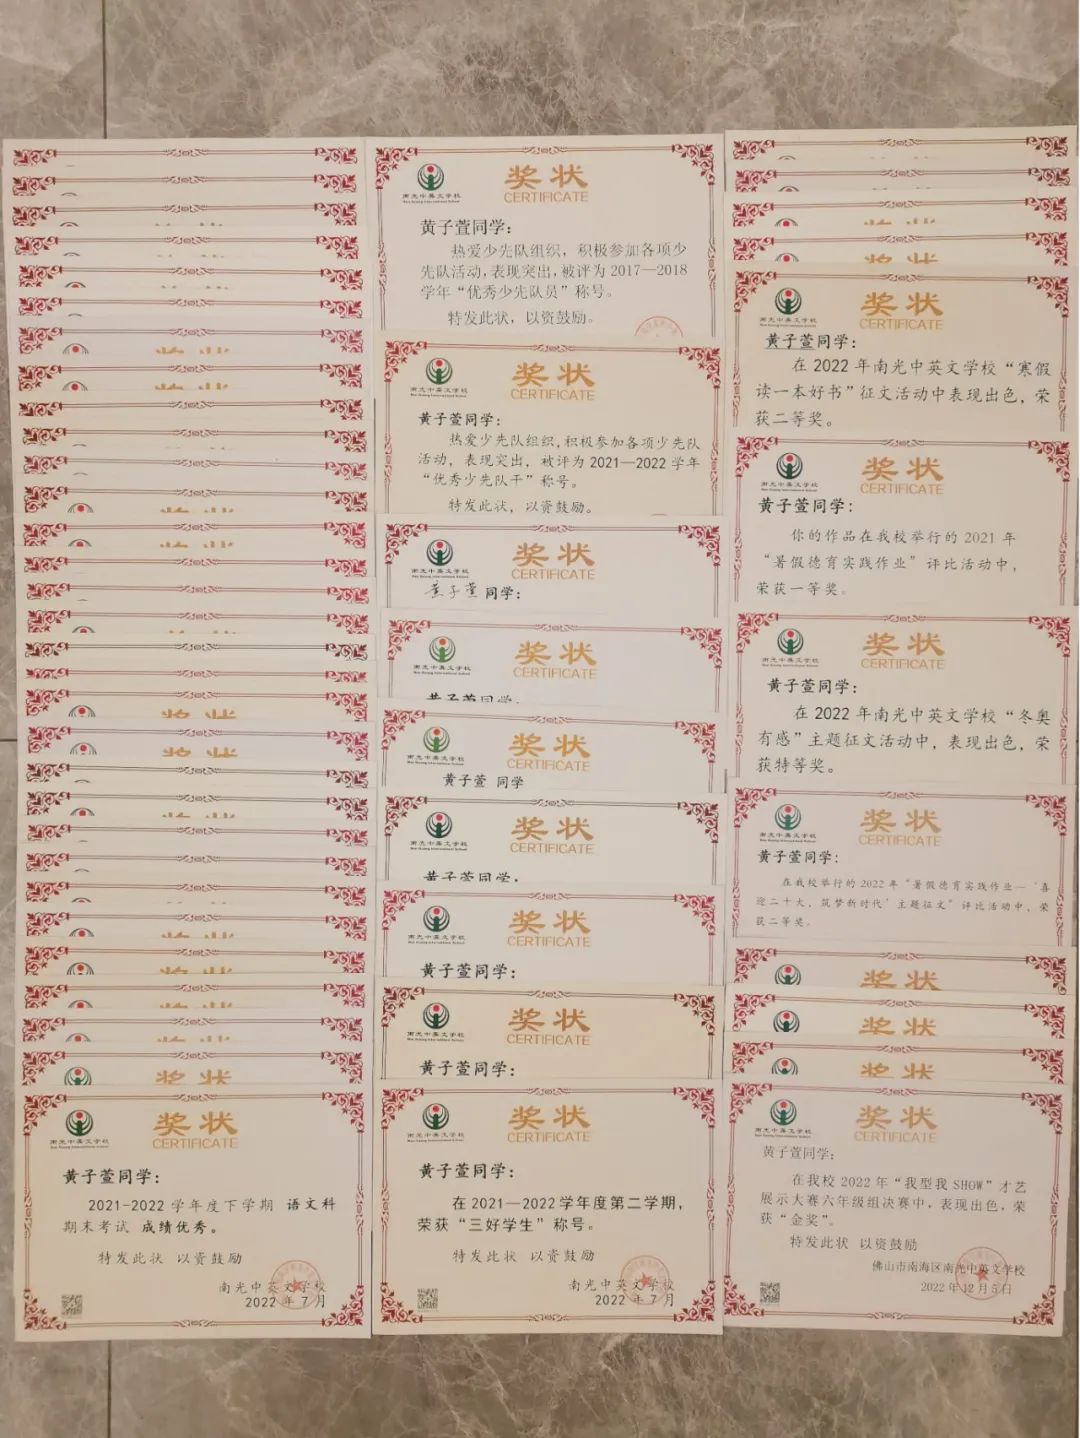 奖状
CERTIFICATE
2021-2022 学年度下学期 语文科
黄子萱同学：
期末考试 成绩优秀。
特发此状 以资鼓励
南光中英文学校
2022 年 7 月
南光中英文学校
奖状
CERTIFICATE
黄子萱同学：
热爱少先队组织，积极参加各项少
先队活动，表现突出，被评为 2017—2018
学年“优秀少先队员”称号。
特发此状，以资鼓励。
南光中英文学校
奖状
CERTIFICATE
黄子萱同学：
热爱少先队组织，积极参加各项少先队
活动，表现突出，被评为 2021—2022 学年
“优秀少先队干”称号。
特发此状，以资鼓励。
南光中英文学校
奖状
CERTIFICATE
黄子萱 同学：
南光中英文学校
奖状
CERTIFICATE
黄子萱同学：
南光中英文学校
奖状
CERTIFICATE
黄子萱 同学
南光中英文学校
奖状
CERTIFICATE
黄子萱同学：
南光中英文学校
奖状
CERTIFICATE
黄子萱同学：
南光中英文学校
奖状
CERTIFICATE
黄子萱同学：
南光中英文学校
奖状
CERTIFICATE
黄子萱同学：
在 2021—2022 学年度第二学期，
荣获“三好学生”称号。
特发此状 以资鼓励
南光中英文学校
2022 年 7 月
南光中英文学校
奖状
CERTIFICATE
黄子萱同学：
在 2022 年南光中英文学校“寒假
读一本好书”征文活动中表现出色，荣
获二等奖。
南光中英文学校
奖状
CERTIFICATE
黄子萱同学：
你的作品在我校举行的 2021 年
“暑假德育实践作业”评比活动中，
荣获一等奖。
南光中英文学校
奖状
CERTIFICATE
黄子萱同学：
在 2022 年南光中英文学校“冬奥
有感”主题征文活动中，表现出色，荣
获特等奖。
南光中英文学校
奖状
CERTIFICATE
黄子萱同学：
在我校举行的 2022 年“暑假德育实践作业—‘喜
迎二十大，筑梦新时代’主题征文”评比活动中，荣
获二等奖。
奖状
奖状
奖状
南光中英文学校
奖状
CERTIFICATE
黄子萱同学：
在我校 2022 年“我型我 SHOW”才艺
展示大赛六年级组决赛中，表现出色，荣
获“金奖”。
特发此状 以资鼓励
佛山市南海区南光中英文学校
2022 年 12 月 5 日